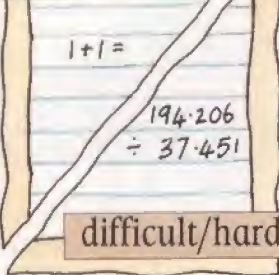 1+1=
194·206
÷ 37·451
difficult/hard